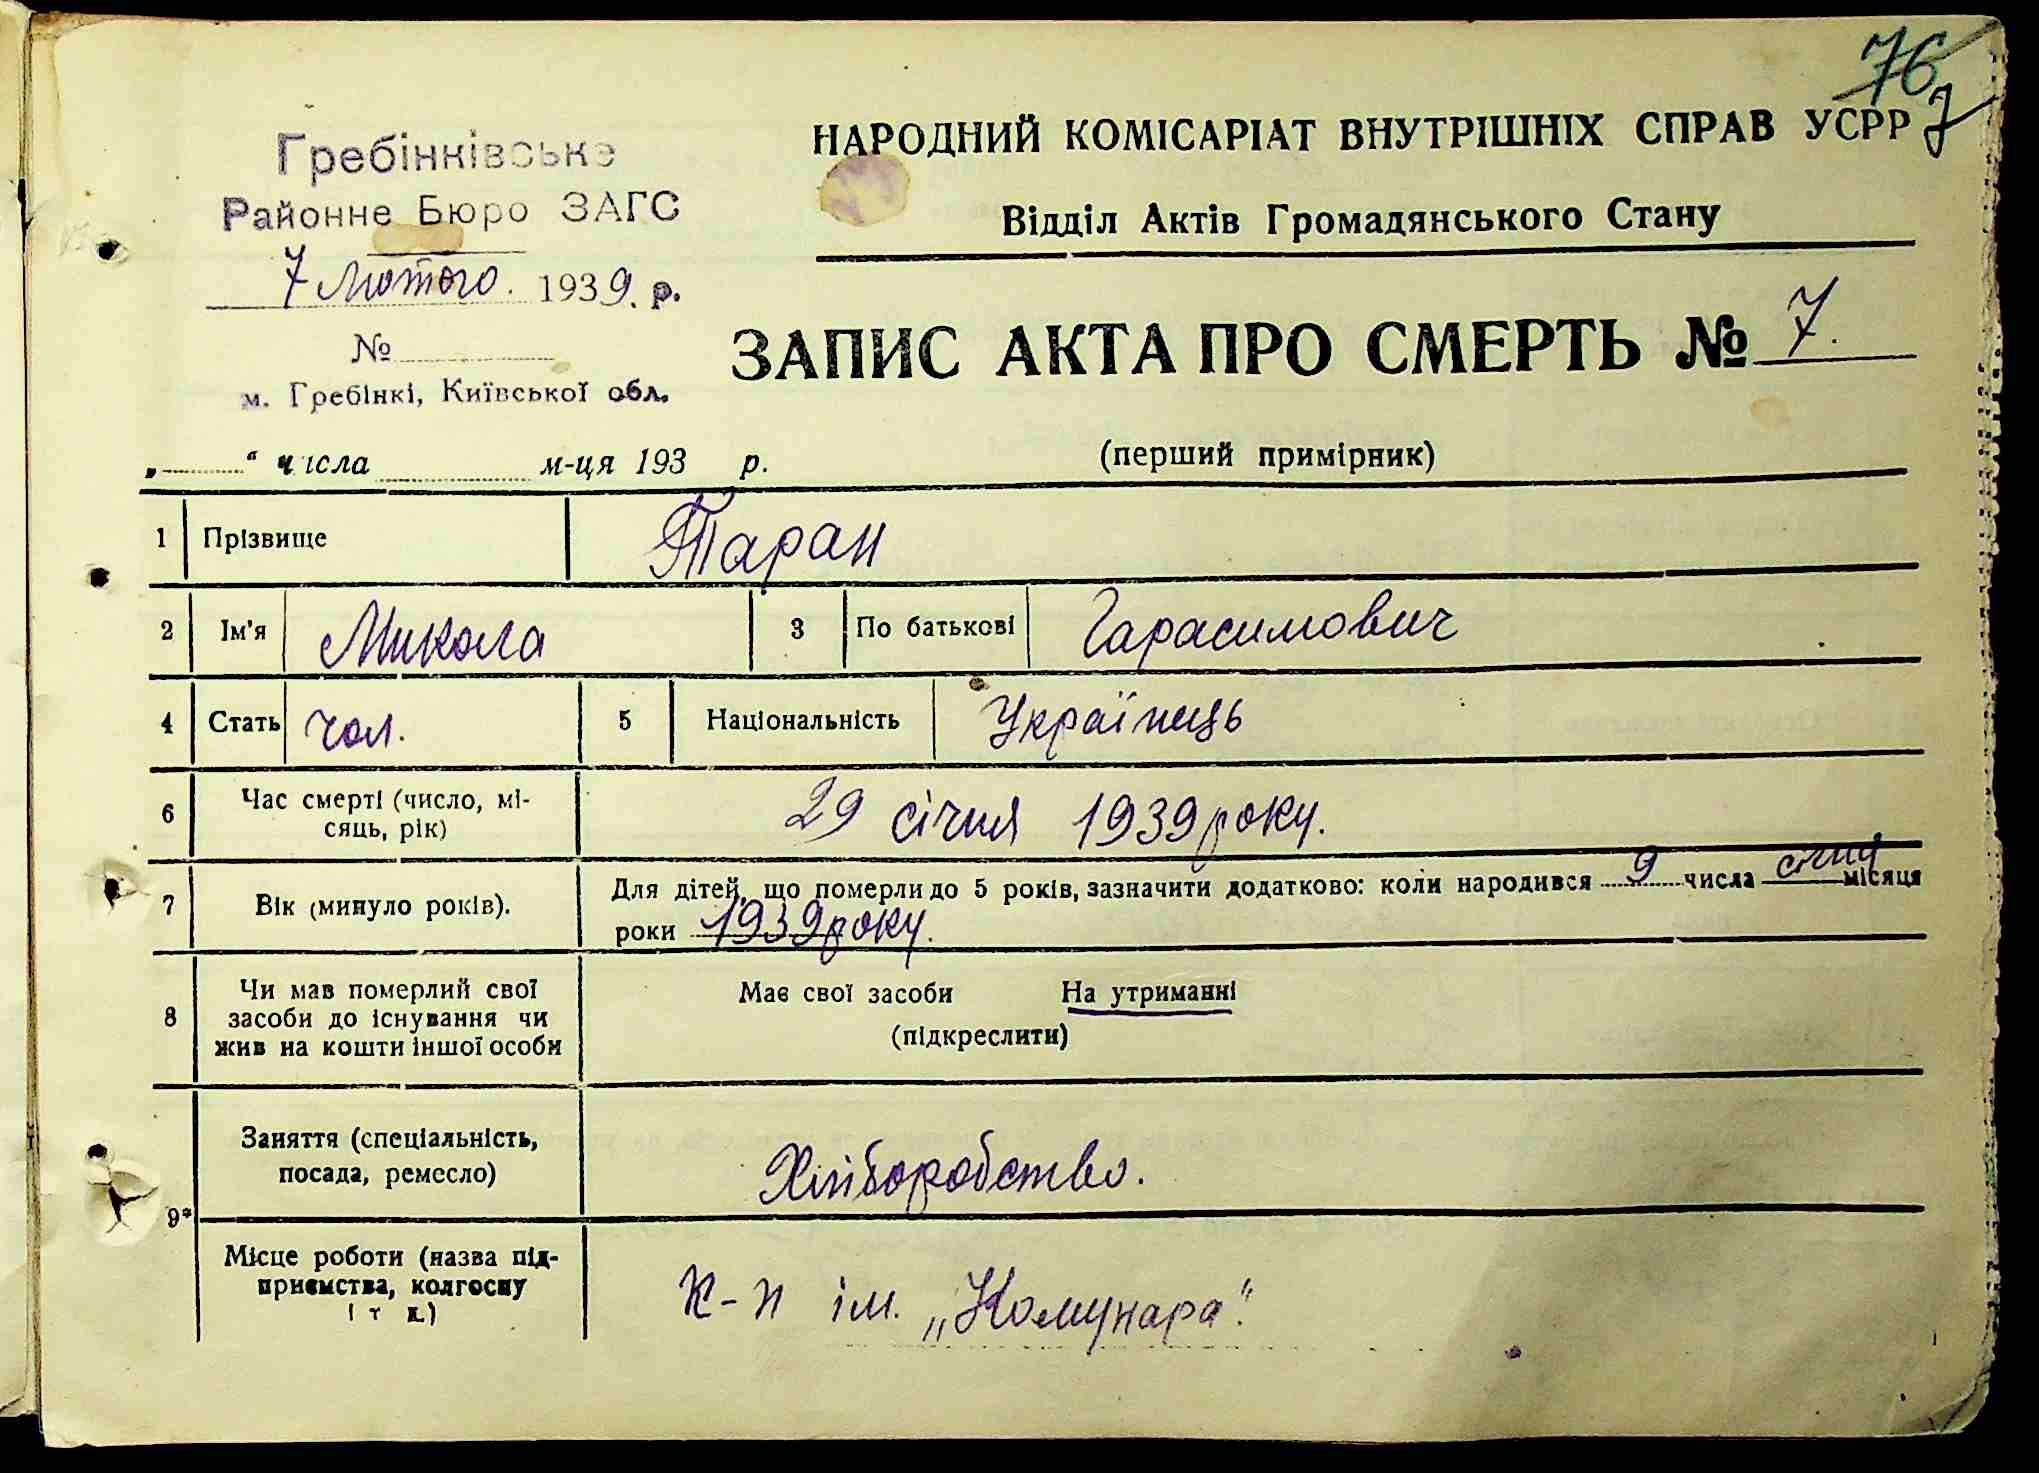 76
7
Гребінківське
Районне Бюро ЗАГС
7 Лютого. 1939. р.
№
м. Гребінкі, Київської обл.
НАРОДНИЙ КОМІСАРІАТ ВНУТРІШНІХ СПРАВ УСРР
Відділ Актів Громадянського Стану
ЗАПИС АКТА ПРО СМЕРТЬ № 7.
„ “ числа м-ця 193 р.
(перший примірник)
1 Прізвище Таран
2 Ім'я Микола 3 По батькові Гарасимович
4 Стать чол. 5 Національність Українець
6 Час смерті (число, мі-
сяць, рік)
29 січня 1939 року.
7 Вік (минуло років).
Для дітей, що померли до 5 років, зазначити додатково: коли народився 9 числа січня місяця
роки 1939 року.
8 Чи мав померлий свої
засоби до існування чи
жив на кошти іншої особи
Має свої засоби На утриманні
(підкреслити)
9* Заняття (спеціальність,
посада, ремесло)
Хліборобство.
Місце роботи (назва під-
приємства, колгоспу
і т д.)
К-п ім. „Комунара“.